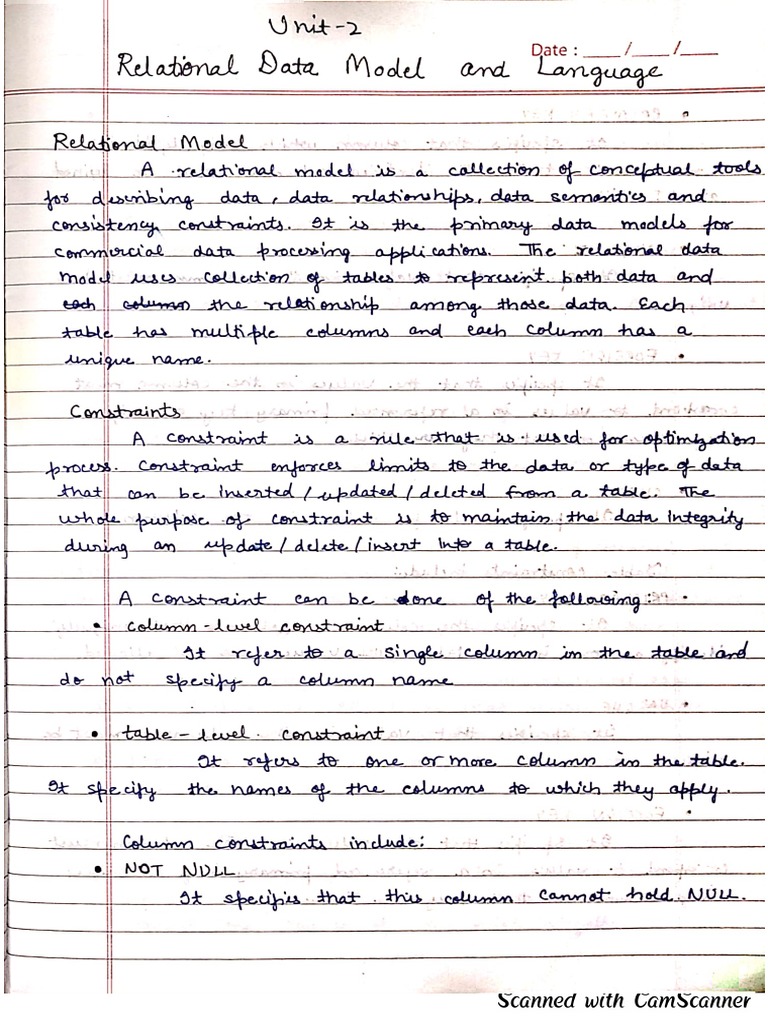 Unit-2
Date : ___/___/___
Relational Data Model and Language
Relational Model
A relational model is a collection of conceptual tools
for describing data, data relationships, data semantics and
consistency constraints. It is the primary data models for
commercial data processing applications. The relational data
model uses collection of tables to represent both data and
each column the relationship among those data. Each
table has multiple columns and each column has a
unique name.
Constraints
A constraint is a rule that is used for optimization
process. Constraint enforces limits to the data or type of data
that can be inserted/updated/deleted from a table. The
whole purpose of constraint is to maintain the data integrity
during an update/delete/insert into a table.
A constraint can be done of the following:
• column-level constraint
It refer to a single column in the table and
do not specify a column name
• table-level constraint
It refers to one or more column in the table.
It specify the names of the columns to which they apply.
Column constraints include:
• NOT NULL
It specifies that this column cannot hold NULL.
Scanned with CamScanner